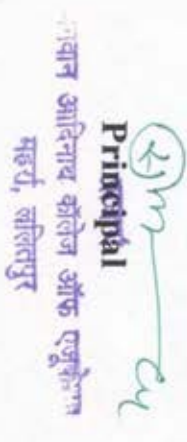 Principal
भगवान आदिनाथ कॉलेज ऑफ एजूकेशन
महर्रा, ललितपुर